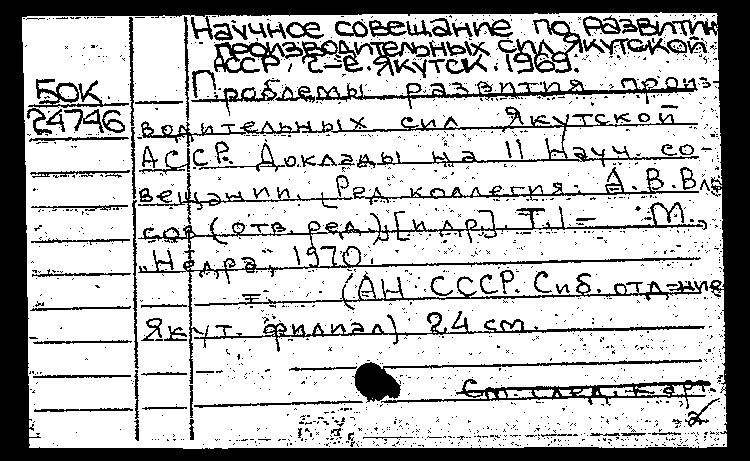 Научное совещание по развитию
производительных сил Якутской
АССР, 2-е. Якутск. 1969.
БОК
Проблемы развития произ-
24746
водительных сил Якутской
АССР. Доклады на II Науч. со-
вещании. [Ред. коллегия: А. В. Вла
сов (отв. ред.), [и др.]. Т. 1 – М.,
"Недра", 1970.
(АН СССР. Сиб. отд-ние
Якут. филиал) 24 cm.
См. след. карт.
2